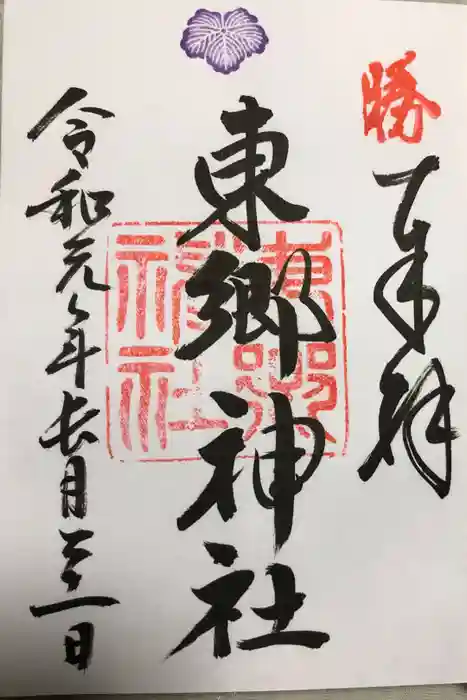 勝
奉拝
東郷神社
東郷神社
令和元年長月二二日